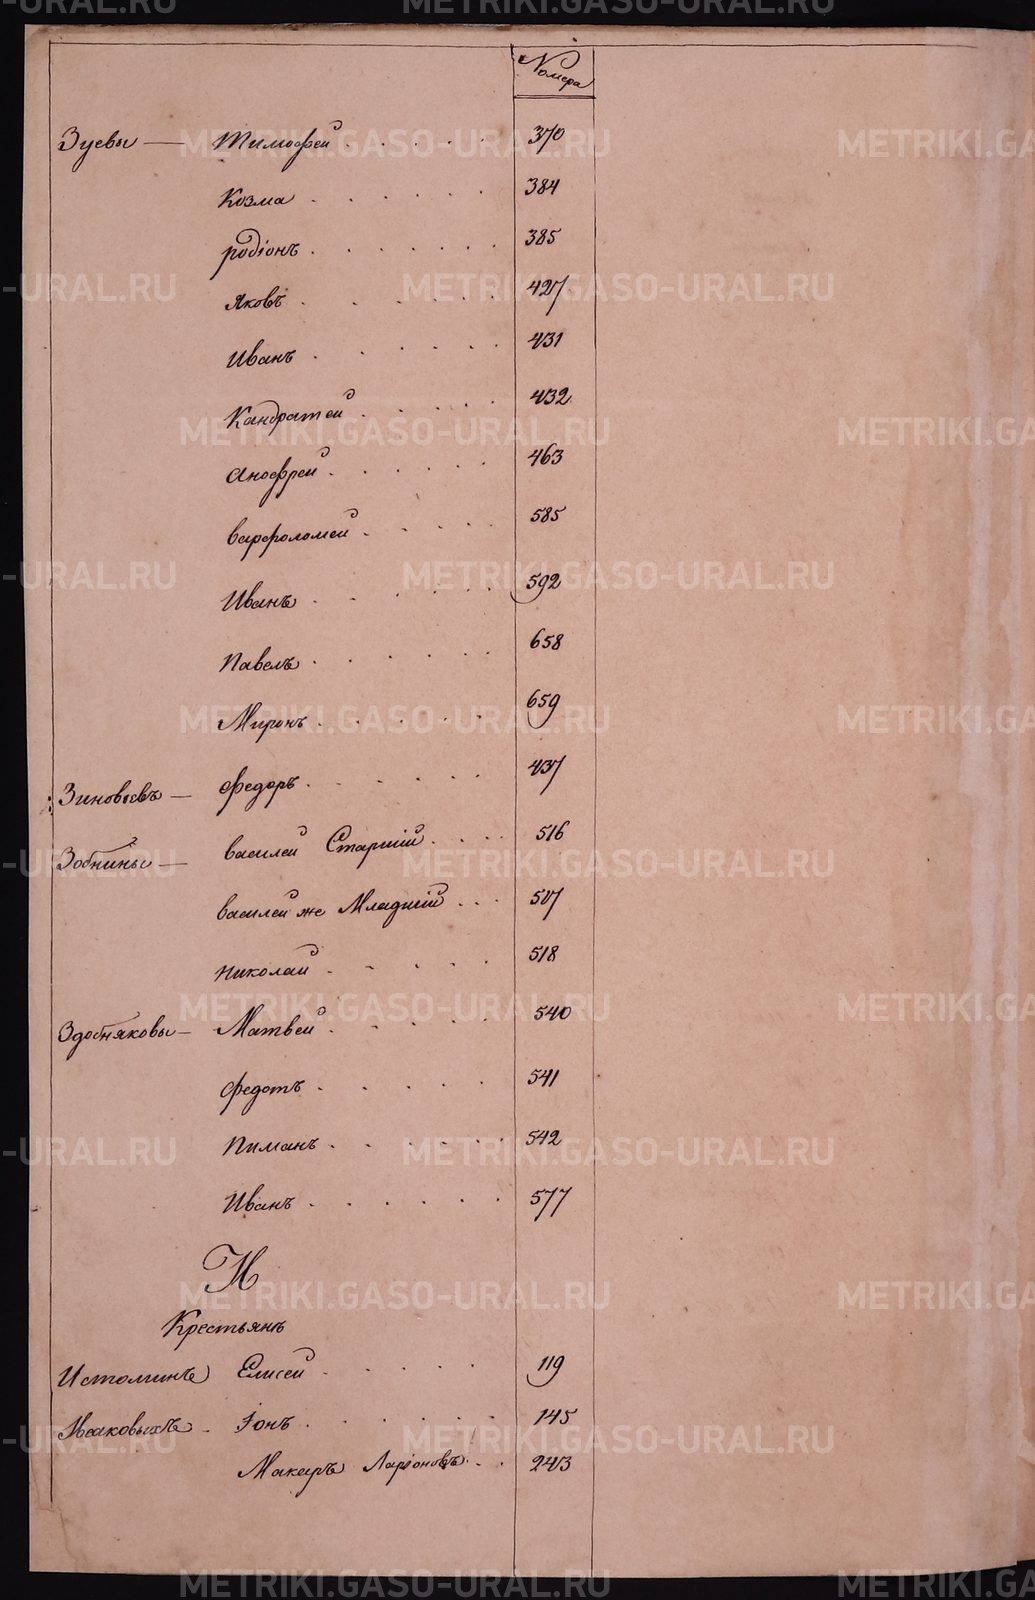 Номера
Зуевы — Тимофей . . . . . 370
Козма . . . . . 384
родіонъ . . . . . . 385
Яковъ . . . . . 427
Иванъ . . . . . 431
Кандратей . . . . 432
Анофрей . . . . . 463
варфоломей . . . . 585
Иванъ . . . . . 592
Павелъ . . . . . 658
Миронъ . . . . . 659
Зиновьевъ — федоръ . . . . . 437
Зобнины — василей Старшій . . . 516
василей же Младшій . . . 517
Николай . . . . . 518
Здобняковы — Матвей . . . . . 540
федотъ . . . . . 541
Пиманъ . . . . . 542
Иванъ . . . . . . 577
И
Крестьянъ
Истоминъ Елисей . . . . . 119
Исаковыхъ - Іонъ . . . . . . 145
Макаръ Ларіоновъ . . 243
METRIKI.GASO-URAL.RU